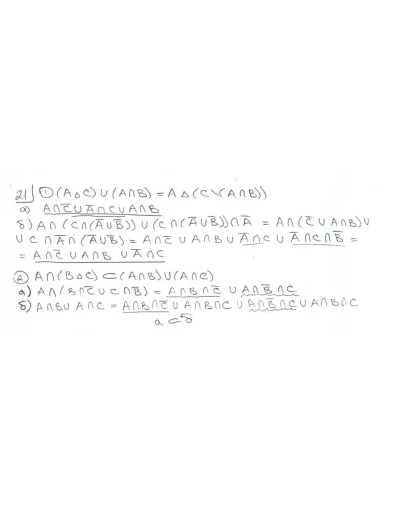 21) ① (A△C)∪(A∩B) = A△(C\(A∩B))
а) A∩C̅∪A̅∩C∪A∩B
б) A∩(C∩(A̅∪B̅))∪(C∩(A̅∪B̅))∩A̅ = A∩(C̅∪A∩B)∪
∪C∩A̅∩(A̅∪B̅) = A∩C̅∪A∩B∪A̅∩C∪A̅∩C∩B̅ =
= A∩C̅∪A∩B∪A̅∩C
② A∩(B△C)⊂(A∩B)∪(A∩C)
а) A∩(B∩C̅∪C∩B̅) = A∩B∩C̅∪A∩B̅∩C
б) A∩B∪A∩C = A∩B∩C̅∪A∩B∩C∪A∩B̅∩C∪A∩B∩C
а⊂б